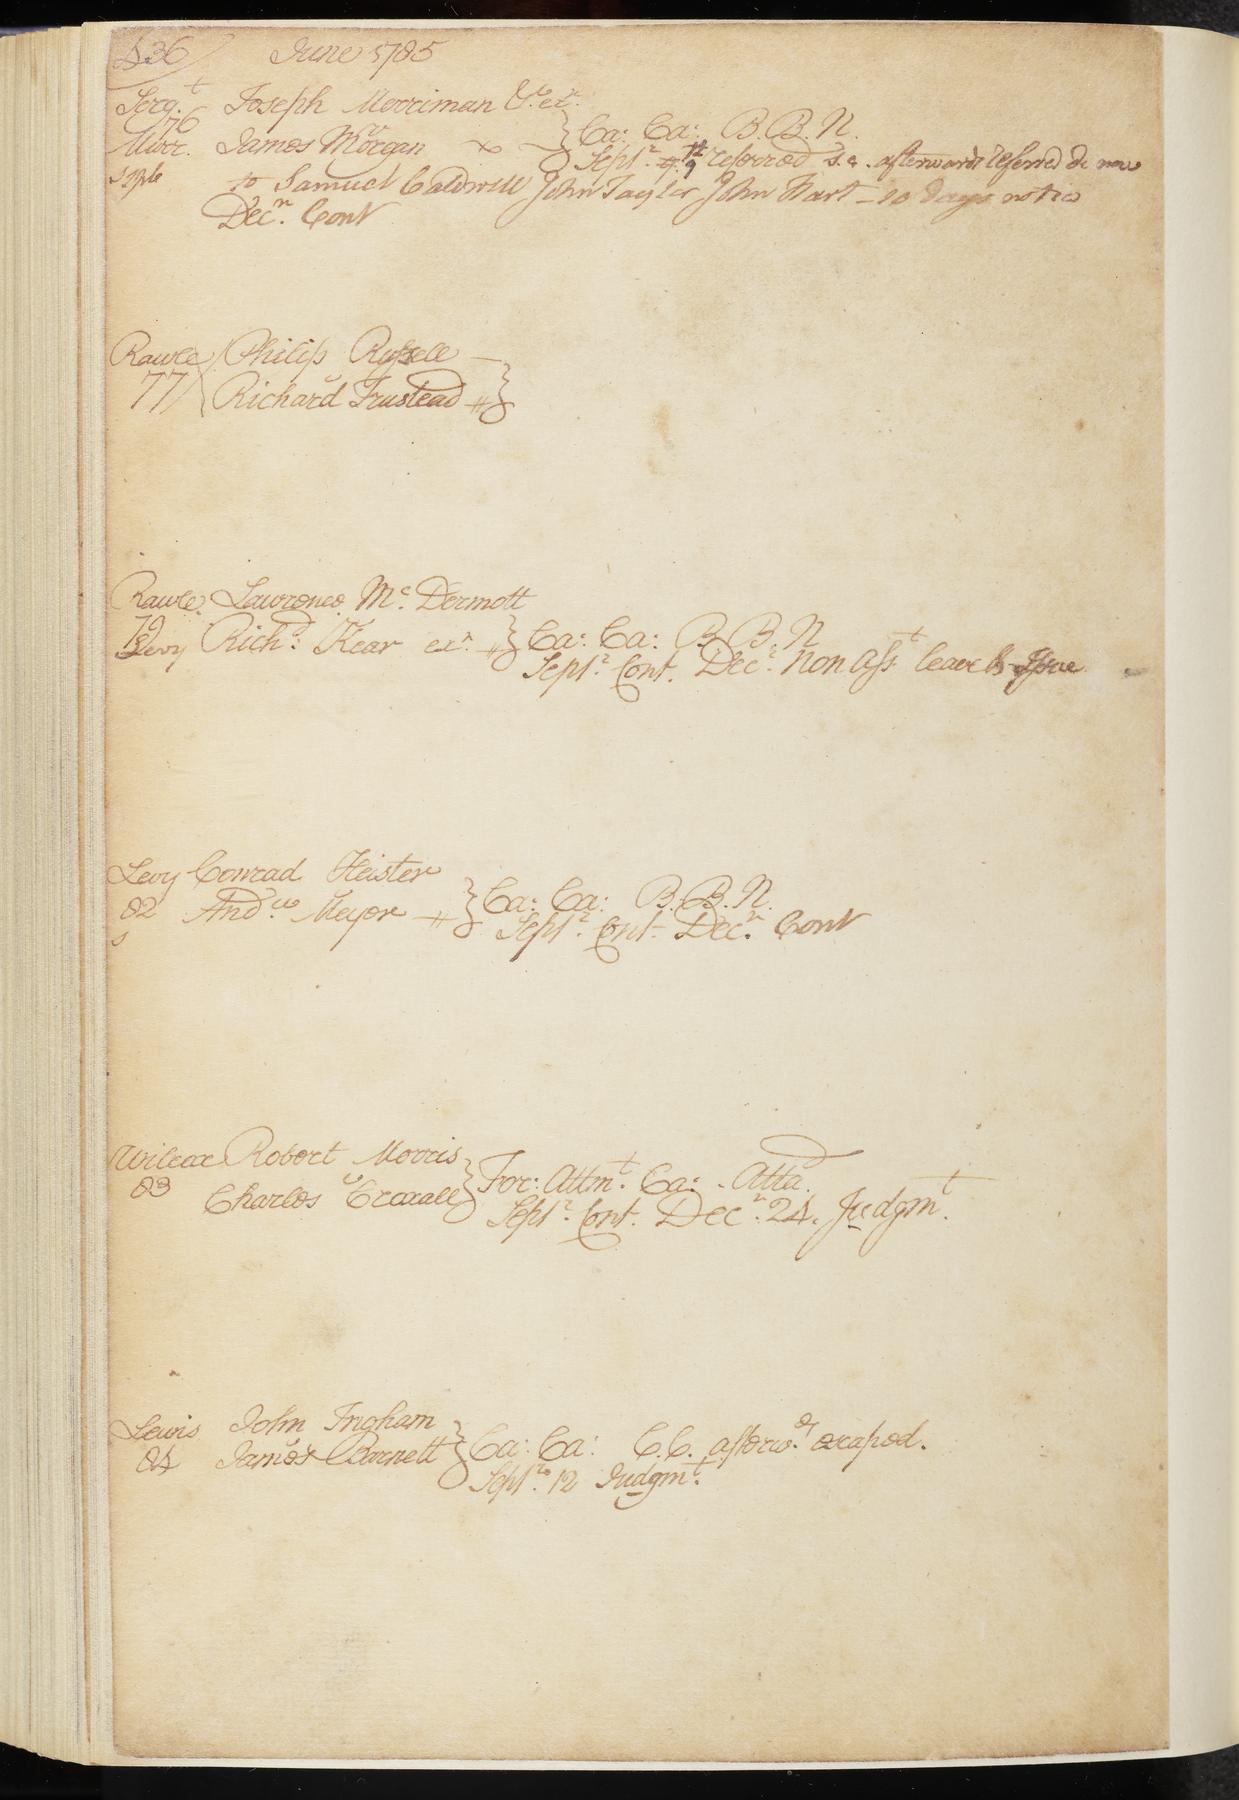 436 June 1785
Serg.t Joseph Merriman &c exr.
76
v
James Morgan } Ca: Ca: B.B.N.
Septr. referred S.e. afterwards referred de novo
to Samuel Caldwell John Taylor John Hart - 10 Days notice
Decr. Cont
Rawle Philip Russell
77 v
Richard Trustead #}
Rawle Lawrence McDermott
79
Levy Richd. Kear exr. #} Ca: Ca: B.B.N
Septr. Cont. Decr. Non Asst leave & Issue
Levy Conrad Heister
v
82 Andw. Meyer #} Ca: Ca: B.B.N.
s Septr. Cont. Decr. Cont
Wilcox Robert Morris
v
83 Charles Croxall } For: Attmt. Ca: Attd.
Septr. Cont. Decr. 24. Judgmt.
Lewis John Ingham
v
84 James Barnett } Ca: Ca: C.C. afterwds. escaped.
Septr. 12 Judgmt.